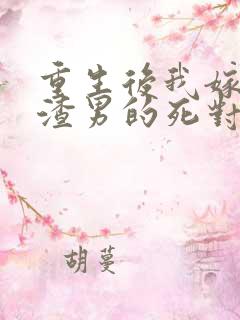 重生後我嫁
渣男的死對
胡蔓